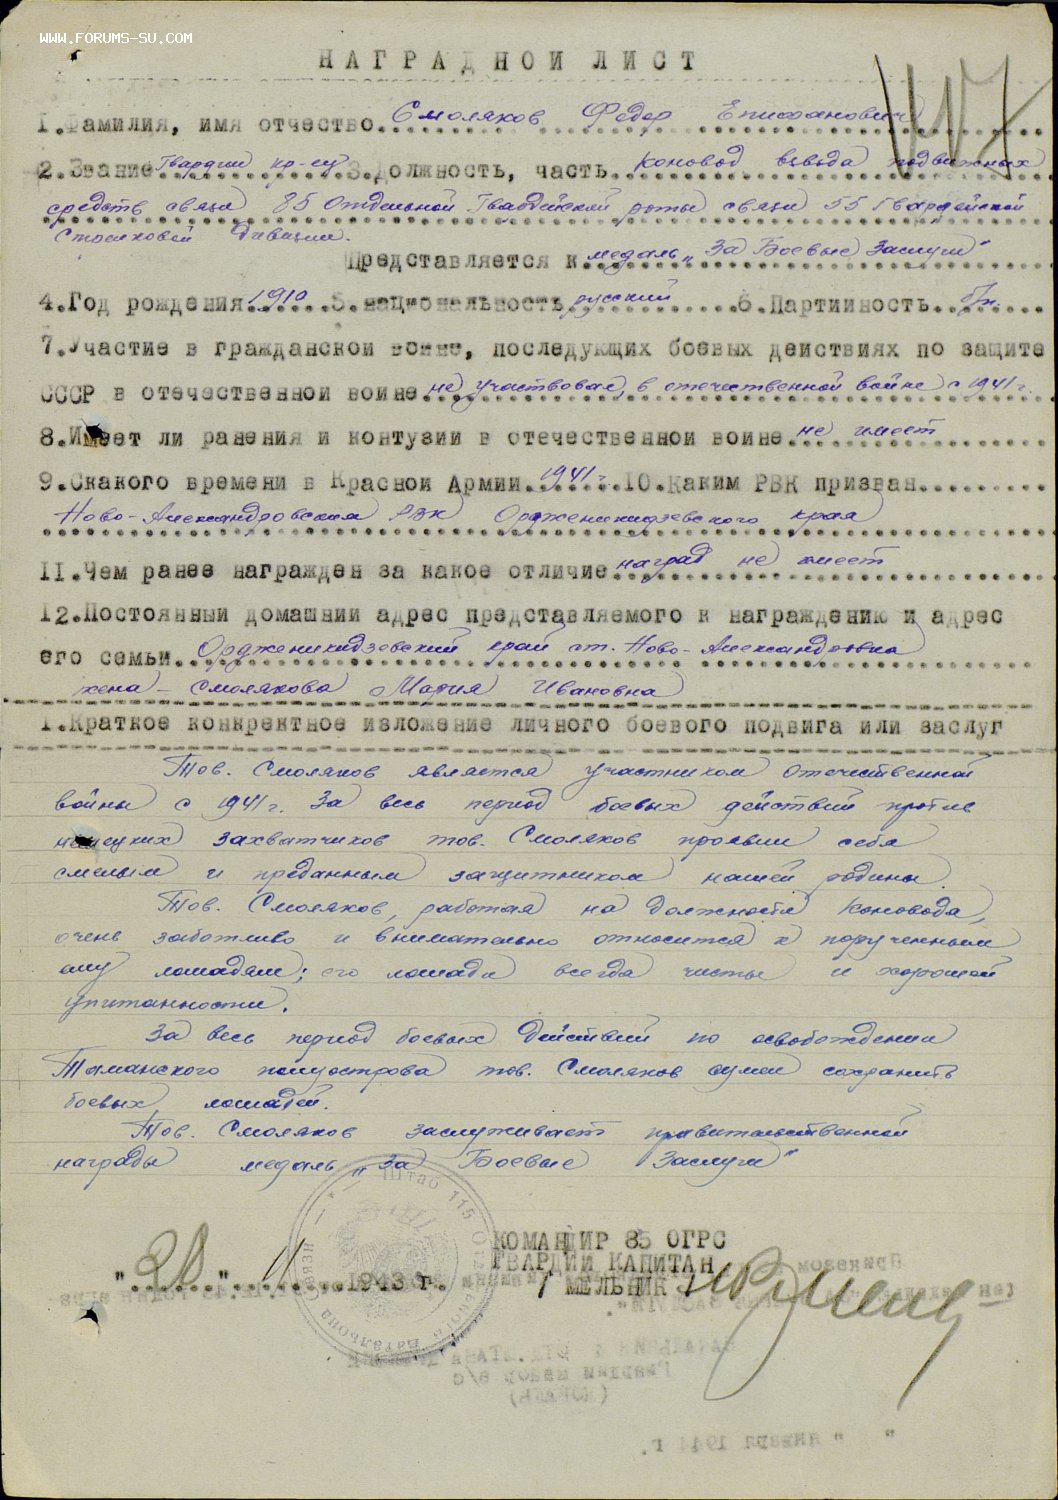 WWW.FORUMS-SU.COM
НАГРАДНОЙ ЛИСТ
1.Фамилия, имя отчество Смоляков Федор Епифанович
2.Звание Гвардии кр-ец 3.Должность, часть коновод взвода подвижных
средств связи 85 Отдельной Гвардейской роты связи 55 Гвардейской
Стрелковой Дивизии.
Представляется к медаль „За Боевые Заслуги"
4.Год рождения 1910 5.национальность русский 6.Партийность б/п.
7.Участие в гражданской войне, последующих боевых действиях по защите
СССР в отечественной войне не участвовал, в отечественной войне с 1941 г.
8.Имеет ли ранения и контузии в отечественной войне не имеет
9.Скакого времени в Красной Армии 1941 г. 10.Каким РВК призван
Ново-Александровским РВК Орджоникидзевского края
11.Чем ранее награжден за какое отличие наград не имеет
12.Постоянный домашний адрес представляемого к награждению и адрес
его семьи Орджоникидзевский край ст. Ново-Александровка
жена - Смолякова Мария Ивановна
1.Краткое конкрентное изложение личного боевого подвига или заслуг
Тов. Смоляков является участником Отечественной
войны с 1941 г. За весь период боевых действий против
немецких захватчиков тов. Смоляков проявил себя
смелым и преданным защитником нашей родины.
Тов. Смоляков, работая на должности коновода,
очень заботливо и внимательно относится к порученным
ему лошадям; его лошади всегда чисты и хорошей
упитанности.
За весь период боевых действий по освобождении
Таманского полуострова тов. Смоляков сумел сохранить
боевых лошадей.
Тов. Смоляков заслуживает правительственной
награды медаль „За Боевые Заслуги"
Штаб 115
КОМАНДИР 85 ОГРС
ГВАРДИИ КАПИТАН
"20" 11 1943 г. / МЕЛЬНИК /